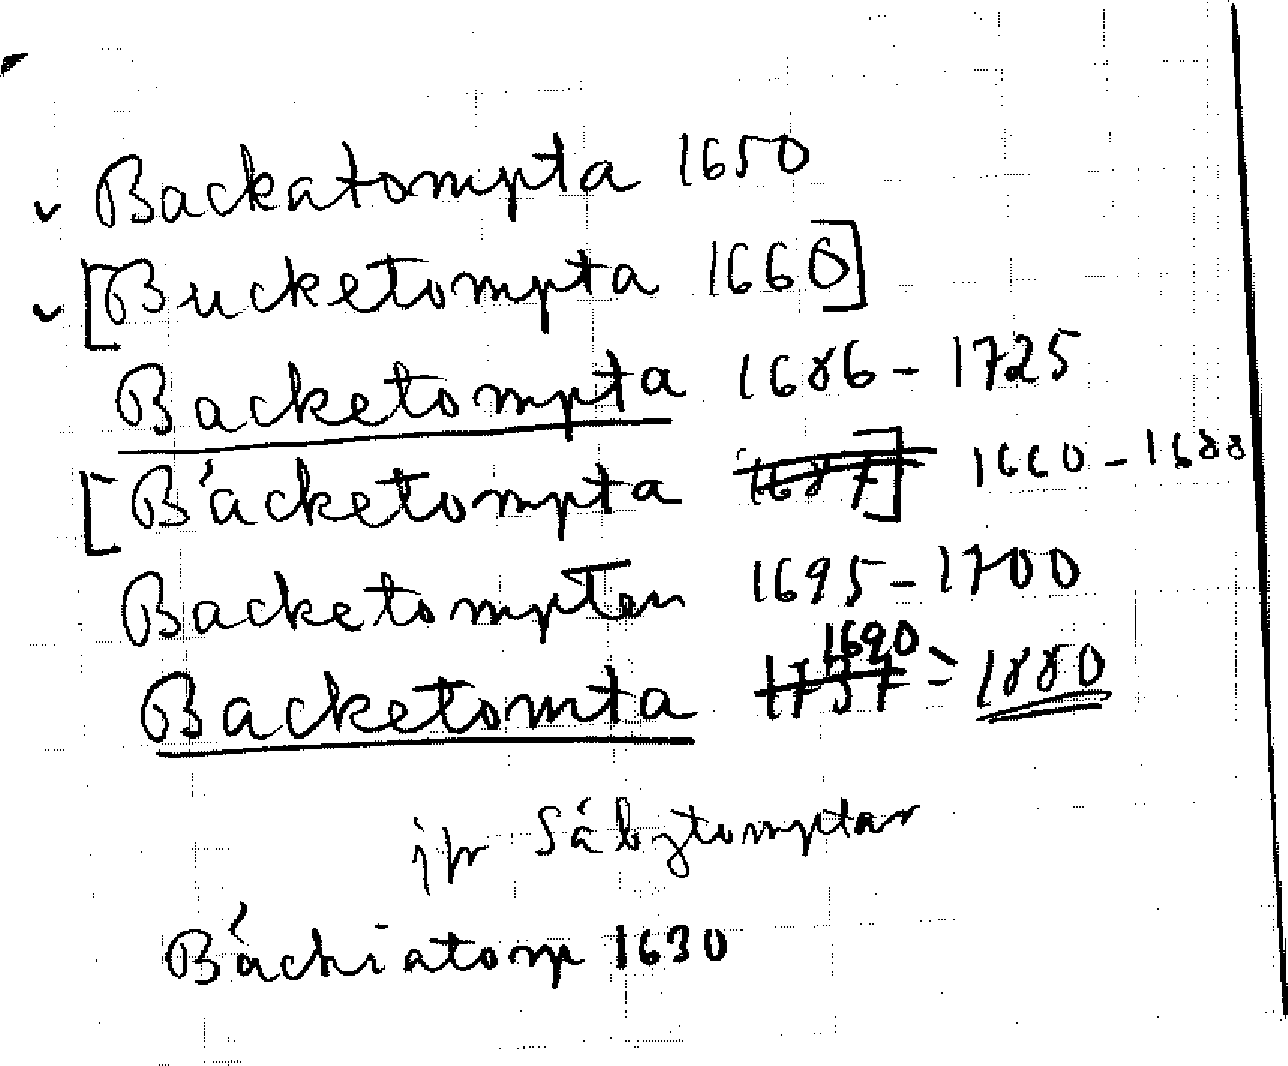 Backatompta 1650
[Bucketompta 1660]
Backetompta 1686-1725
[Bácketompta 1687] 1660-1688
Backetompten 1695-1700
Backetomta 1737 1690 - 1880
jfr Säbytomptar
Báckiatomp 1630